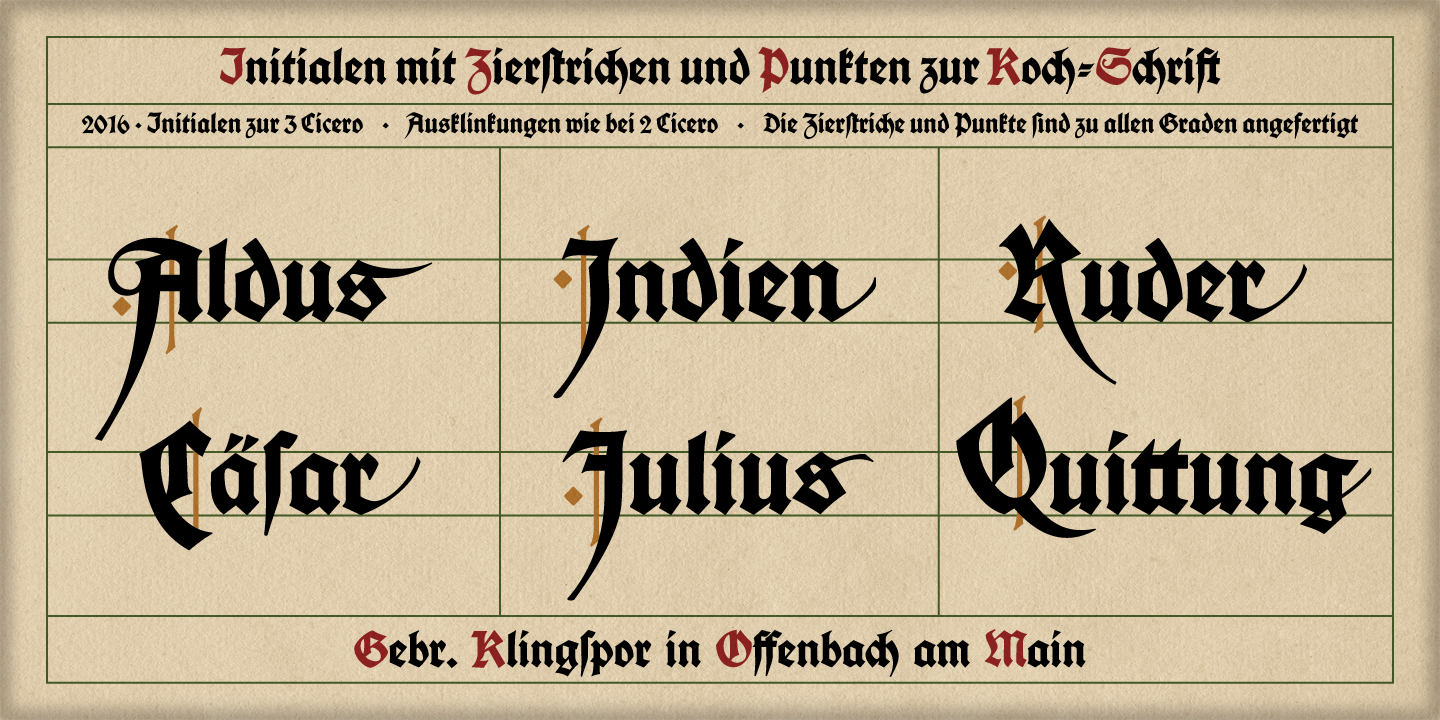 Initialen mit Zierſtrichen und Punkten zur Koch-Schrift
2016 · Initialen zur 3 Cicero · Ausklinkungen wie bei 2 Cicero · Die Zierſtriche und Punkte ſind zu allen Graden angefertigt
Aldus Indien Ruder
Cäſar Julius Quittung
Gebr. Klingſpor in Offenbach am Main